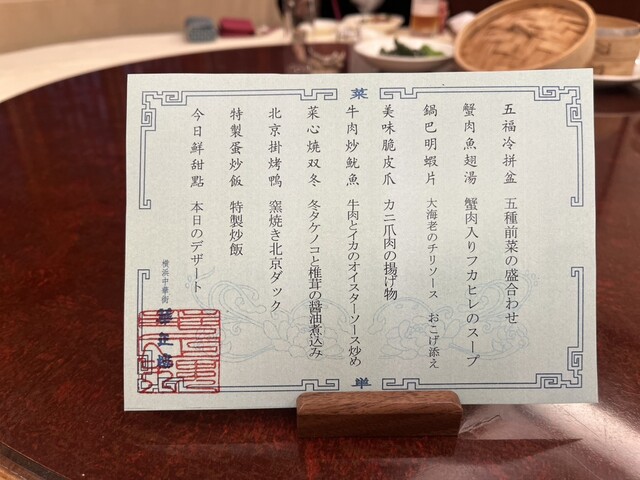 菜
五福冷拼盆 五種前菜の盛合わせ
蟹肉魚翅湯 蟹肉入りフカヒレのスープ
鍋巴明蝦片 大海老のチリソース おこげ添え
美味脆皮爪 カニ爪肉の揚げ物
牛肉炒魷魚 牛肉とイカのオイスターソース炒め
菜心燒双冬 冬タケノコと椎茸の醤油煮込み
北京掛烤鴨 窯焼き北京ダック
特製蛋炒飯 特製炒飯
今日鮮甜點 本日のデザート
横浜中華街
單